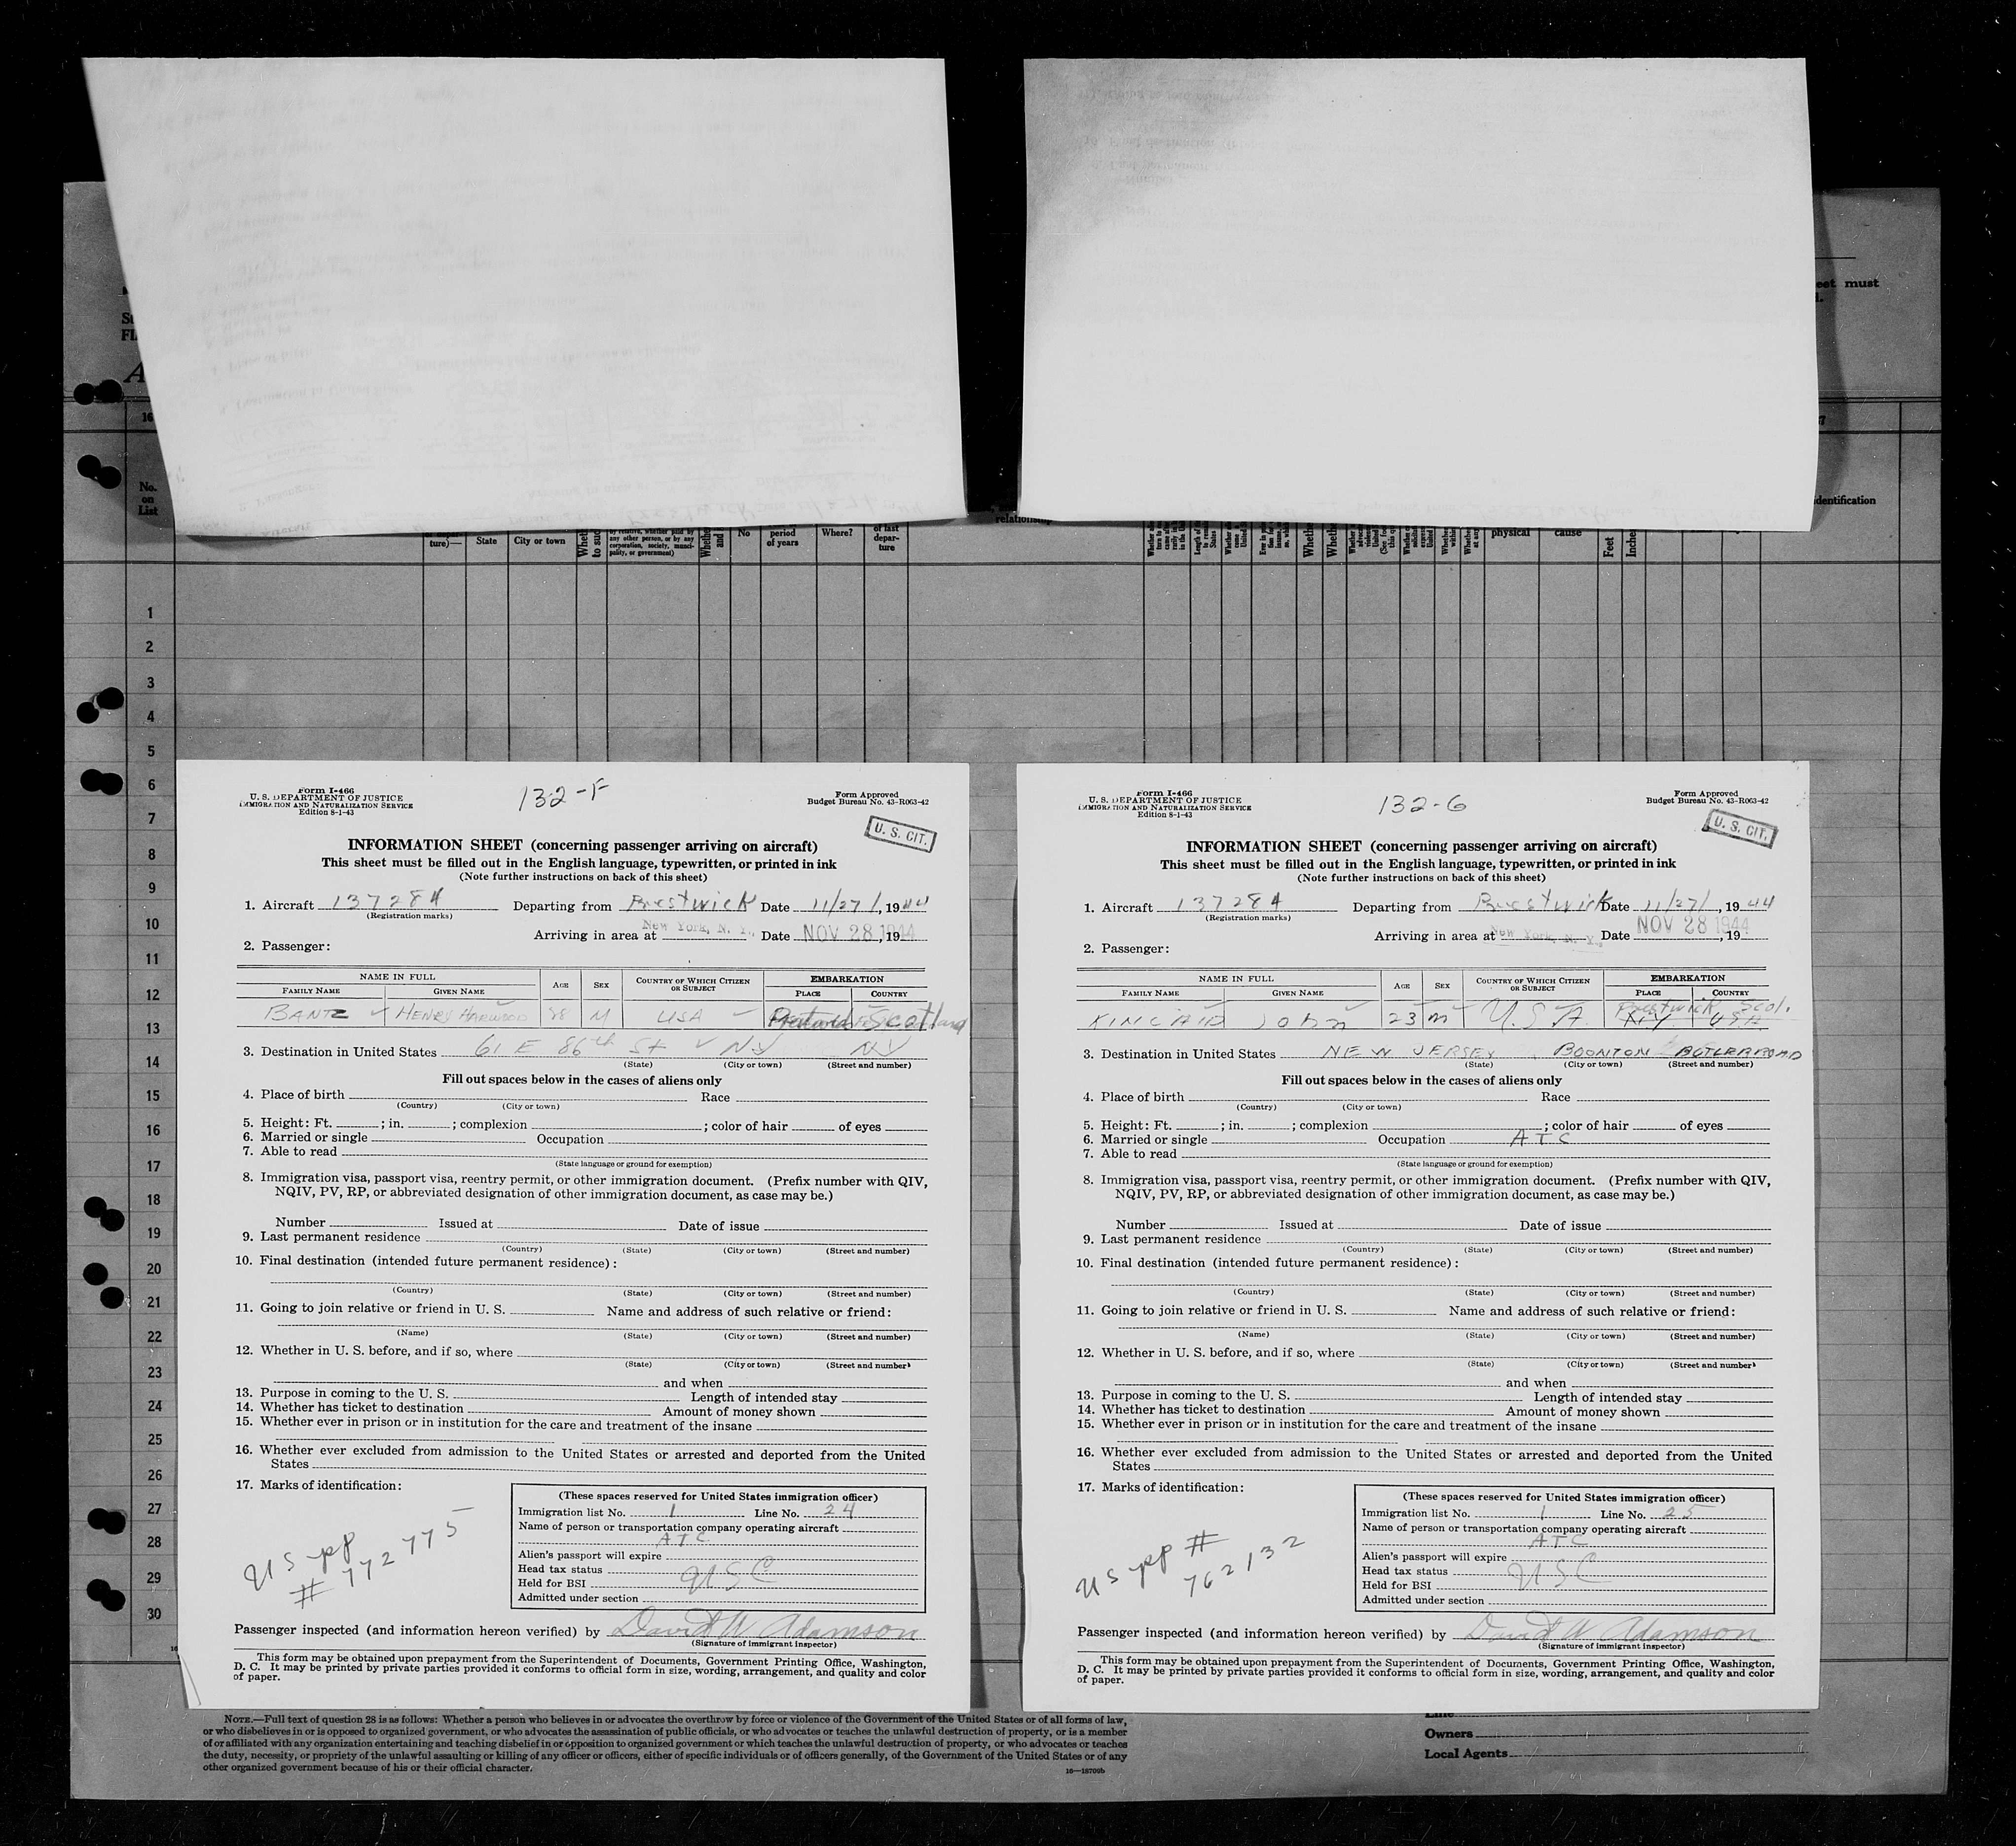 eet must
No.
on
List
ture)—
State
City or town
No
period
of years
Where?
of last
depar-
ture
relationship
physical
cause
Feet
Inches
identification
1
2
3
4
5
6
7
8
9
10
11
12
13
14
15
16
17
18
19
20
21
22
23
24
25
26
27
28
29
30
Form I-466
U. S. DEPARTMENT OF JUSTICE
IMMIGRATION AND NATURALIZATION SERVICE
Edition 8-1-43
132-F
Form Approved
Budget Bureau No. 43-R063-42
U. S. CIT.
INFORMATION SHEET (concerning passenger arriving on aircraft)
This sheet must be filled out in the English language, typewritten, or printed in ink
(Note further instructions on back of this sheet)
1. Aircraft 137284 Departing from Prestwick Date 11/27/, 1944
(Registration marks)
Arriving in area at New York, N. Y., Date NOV 28 1944, 19
2. Passenger:
NAME IN FULL
AGE
SEX
COUNTRY OF WHICH CITIZEN OR SUBJECT
EMBARKATION
FAMILY NAME
GIVEN NAME
PLACE
COUNTRY
BANTZ HENRY HARWOOD 38 M USA Scotland
3. Destination in United States 61 E 86th St NY NY
(State) (City or town) (Street and number)
Fill out spaces below in the cases of aliens only
4. Place of birth Race
(Country) (City or town)
5. Height: Ft. ; in. ; complexion ; color of hair of eyes
6. Married or single Occupation
7. Able to read
(State language or ground for exemption)
8. Immigration visa, passport visa, reentry permit, or other immigration document. (Prefix number with QIV,
NQIV, PV, RP, or abbreviated designation of other immigration document, as case may be.)
Number Issued at Date of issue
9. Last permanent residence
(Country) (State) (City or town) (Street and number)
10. Final destination (intended future permanent residence):
(Country) (State) (City or town) (Street and number)
11. Going to join relative or friend in U. S. Name and address of such relative or friend:
(Name) (State) (City or town) (Street and number)
12. Whether in U. S. before, and if so, where
(State) (City or town) (Street and number)
and when
13. Purpose in coming to the U. S. Length of intended stay
14. Whether has ticket to destination Amount of money shown
15. Whether ever in prison or in institution for the care and treatment of the insane
16. Whether ever excluded from admission to the United States or arrested and deported from the United
States
17. Marks of identification:
US pp
# 772775
(These spaces reserved for United States immigration officer)
Immigration list No. 1 Line No. 24
Name of person or transportation company operating aircraft
ATC
Alien's passport will expire
Head tax status USC
Held for BSI
Admitted under section
Passenger inspected (and information hereon verified) by David W Adamson
(Signature of immigrant inspector)
This form may be obtained upon prepayment from the Superintendent of Documents, Government Printing Office, Washington,
D. C. It may be printed by private parties provided it conforms to official form in size, wording, arrangement, and quality and color
of paper.
Form I-466
U. S. DEPARTMENT OF JUSTICE
IMMIGRATION AND NATURALIZATION SERVICE
Edition 8-1-43
132-G
Form Approved
Budget Bureau No. 43-R063-42
U. S. CIT.
INFORMATION SHEET (concerning passenger arriving on aircraft)
This sheet must be filled out in the English language, typewritten, or printed in ink
(Note further instructions on back of this sheet)
1. Aircraft 137284 Departing from Prestwick Date 11/27/, 1944
(Registration marks)
Arriving in area at New York, N. Y., Date NOV 28 1944, 19
2. Passenger:
NAME IN FULL
AGE
SEX
COUNTRY OF WHICH CITIZEN OR SUBJECT
EMBARKATION
FAMILY NAME
GIVEN NAME
PLACE
COUNTRY
Prestwick Scot.
KINCAID John 23 m U.S.A. NY USA
3. Destination in United States NEW JERSEY BOONTON BUTLER ROAD
(State) (City or town) (Street and number)
Fill out spaces below in the cases of aliens only
4. Place of birth Race
(Country) (City or town)
5. Height: Ft. ; in. ; complexion ; color of hair of eyes
6. Married or single Occupation ATC
7. Able to read
(State language or ground for exemption)
8. Immigration visa, passport visa, reentry permit, or other immigration document. (Prefix number with QIV,
NQIV, PV, RP, or abbreviated designation of other immigration document, as case may be.)
Number Issued at Date of issue
9. Last permanent residence
(Country) (State) (City or town) (Street and number)
10. Final destination (intended future permanent residence):
(Country) (State) (City or town) (Street and number)
11. Going to join relative or friend in U. S. Name and address of such relative or friend:
(Name) (State) (City or town) (Street and number)
12. Whether in U. S. before, and if so, where
(State) (City or town) (Street and number)
and when
13. Purpose in coming to the U. S. Length of intended stay
14. Whether has ticket to destination Amount of money shown
15. Whether ever in prison or in institution for the care and treatment of the insane
16. Whether ever excluded from admission to the United States or arrested and deported from the United
States
17. Marks of identification:
US pp #
762132
(These spaces reserved for United States immigration officer)
Immigration list No. 1 Line No. 25
Name of person or transportation company operating aircraft
ATC
Alien's passport will expire
Head tax status USC
Held for BSI
Admitted under section
Passenger inspected (and information hereon verified) by David W Adamson
(Signature of immigrant inspector)
This form may be obtained upon prepayment from the Superintendent of Documents, Government Printing Office, Washington,
D. C. It may be printed by private parties provided it conforms to official form in size, wording, arrangement, and quality and color
of paper.
NOTE.—Full text of question 28 is as follows: Whether a person who believes in or advocates the overthrow by force or violence of the Government of the United States or of all forms of law,
or who disbelieves in or is opposed to organized government, or who advocates the assassination of public officials, or who advocates or teaches the unlawful destruction of property, or is a member
of or affiliated with any organization entertaining and teaching disbelief in or opposition to organized government or which teaches the unlawful destruction of property, or who advocates or teaches
the duty, necessity, or propriety of the unlawful assaulting or killing of any officer or officers, either of specific individuals or of officers generally, of the Government of the United States or of any
other organized government because of his or their official character.
16—18700b
Line
Owners
Local Agents